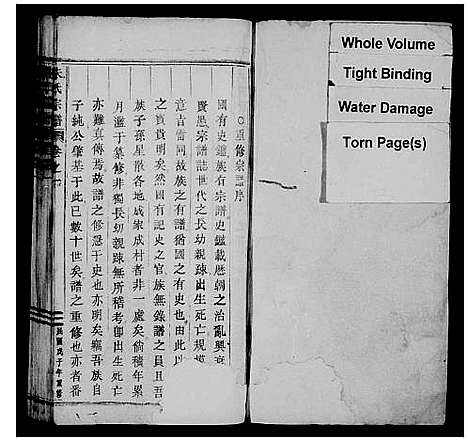 Whole Volume
Tight Binding
Water Damage
Torn Page(s)
重修宗譜序
國有史鑑族有宗譜史鑑載歷朝之治亂興衰
賢愚宗譜誌世代之長幼親疎出生死亡規模
意吉嘗同故族之有譜猶國之有史也由此以
之實貴明矣然而國有記史之官族無錄譜之員且吾
族子孫星散各地成家成村者非一處矣倘積年累
月濫于纂修非獨長幼親疎無所稽考卽出生死亡
亦難真傳焉故譜之修急于史也亦明矣竊吾族自
子純公肇基于此已數十世矣譜之重修也亦者番
氏宗譜 卷之一
民國戊子年重修